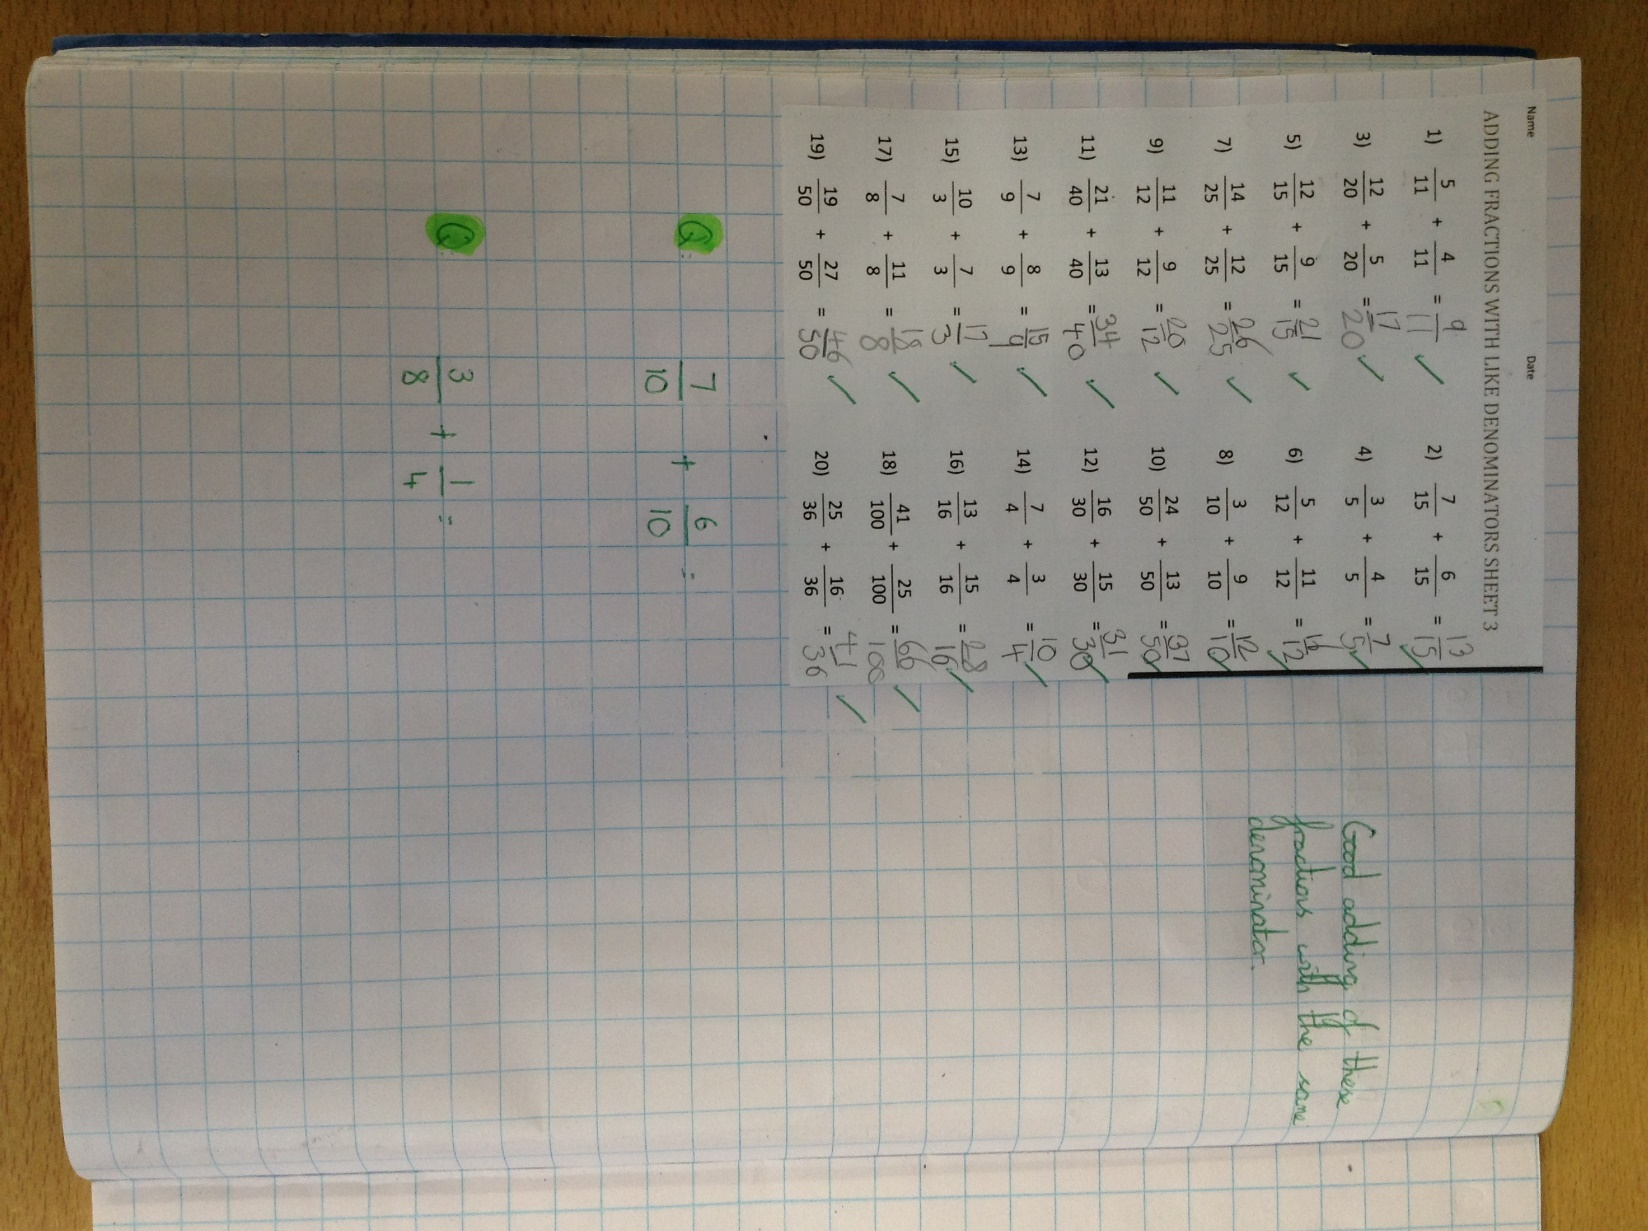 Name Date
ADDING FRACTIONS WITH LIKE DENOMINATORS SHEET 3
1) 5/11 + 4/11 = 9/11 ✓ 2) 7/15 + 6/15 = 13/15 ✓
3) 12/20 + 5/20 = 17/20 ✓ 4) 3/5 + 4/5 = 7/5 ✓
5) 12/15 + 9/15 = 21/15 ✓ 6) 5/12 + 11/12 = 16/12 ✓
7) 14/25 + 12/25 = 26/25 ✓ 8) 3/10 + 9/10 = 12/10 ✓
9) 11/12 + 9/12 = 20/12 ✓ 10) 24/50 + 13/50 = 37/50 ✓
11) 21/40 + 13/40 = 34/40 ✓ 12) 16/30 + 15/30 = 31/30 ✓
13) 7/9 + 8/9 = 15/9 ✓ 14) 7/4 + 3/4 = 10/4 ✓
15) 10/3 + 7/3 = 17/3 ✓ 16) 13/16 + 15/16 = 28/16 ✓
17) 7/8 + 11/8 = 18/8 ✓ 18) 41/100 + 25/100 = 66/100 ✓
19) 19/50 + 27/50 = 46/50 ✓ 20) 25/36 + 16/36 = 41/36 ✓
Good adding of these
fractions with the same
denominator.
Q: 7/10 + 6/10 =
Q: 3/8 + 1/4 =